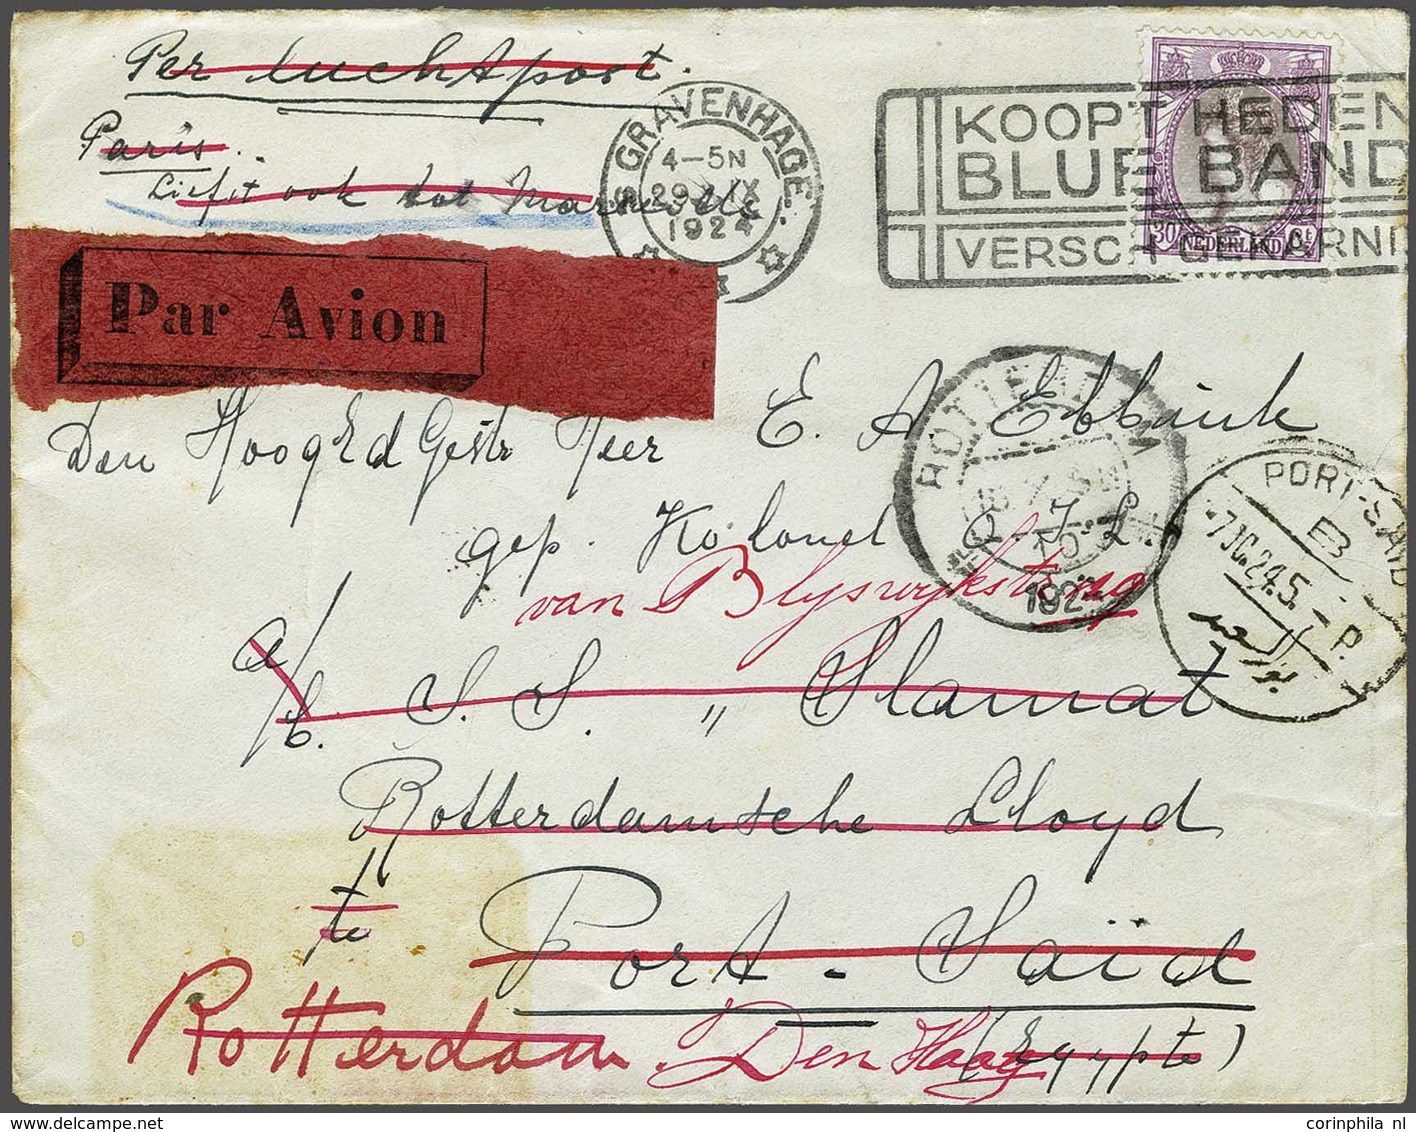 Per luchtpost.
Paris.
Liefst ook tot Marseille.
'S GRAVENHAGE
4-5N
29 IX
1924
KOOPT HEDEN
BLUE BAND
VERSCH GEKARND
30 ct
NEDERLAND
Par Avion
Den HoogEdGestr Heer E. A. Ebbink
gep. Kolonel O.I.L.
van Blyswykstraat
ROTTERDAM
10
192
PORT-SAID
B
7 DC 24.5 - P.
بور سعيد
a/b. S. S. „ Slamat
Rotterdamsche Lloyd
te
Port-Saïd
(Egypte)
Rotterdam.
Den Haag
corinphila nl